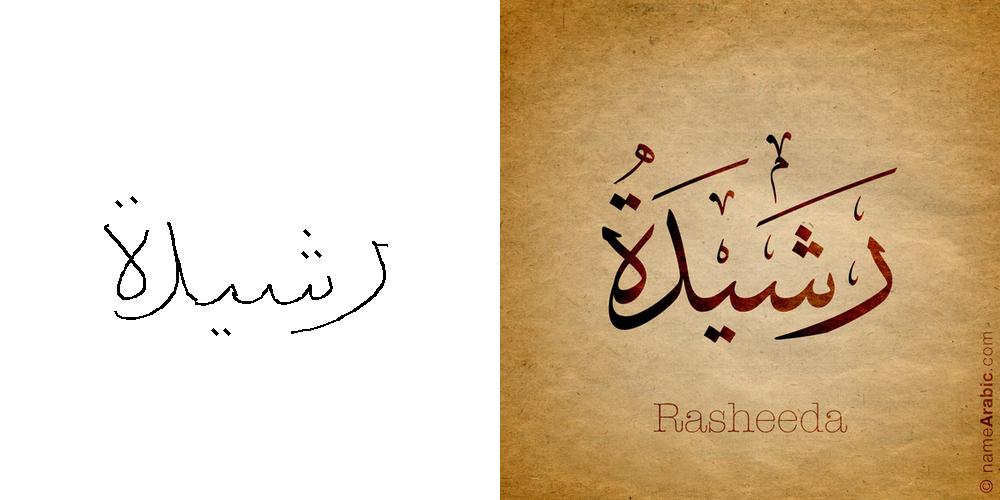 رشيدة
رشيدة
Rasheeda
© nameArabic.com